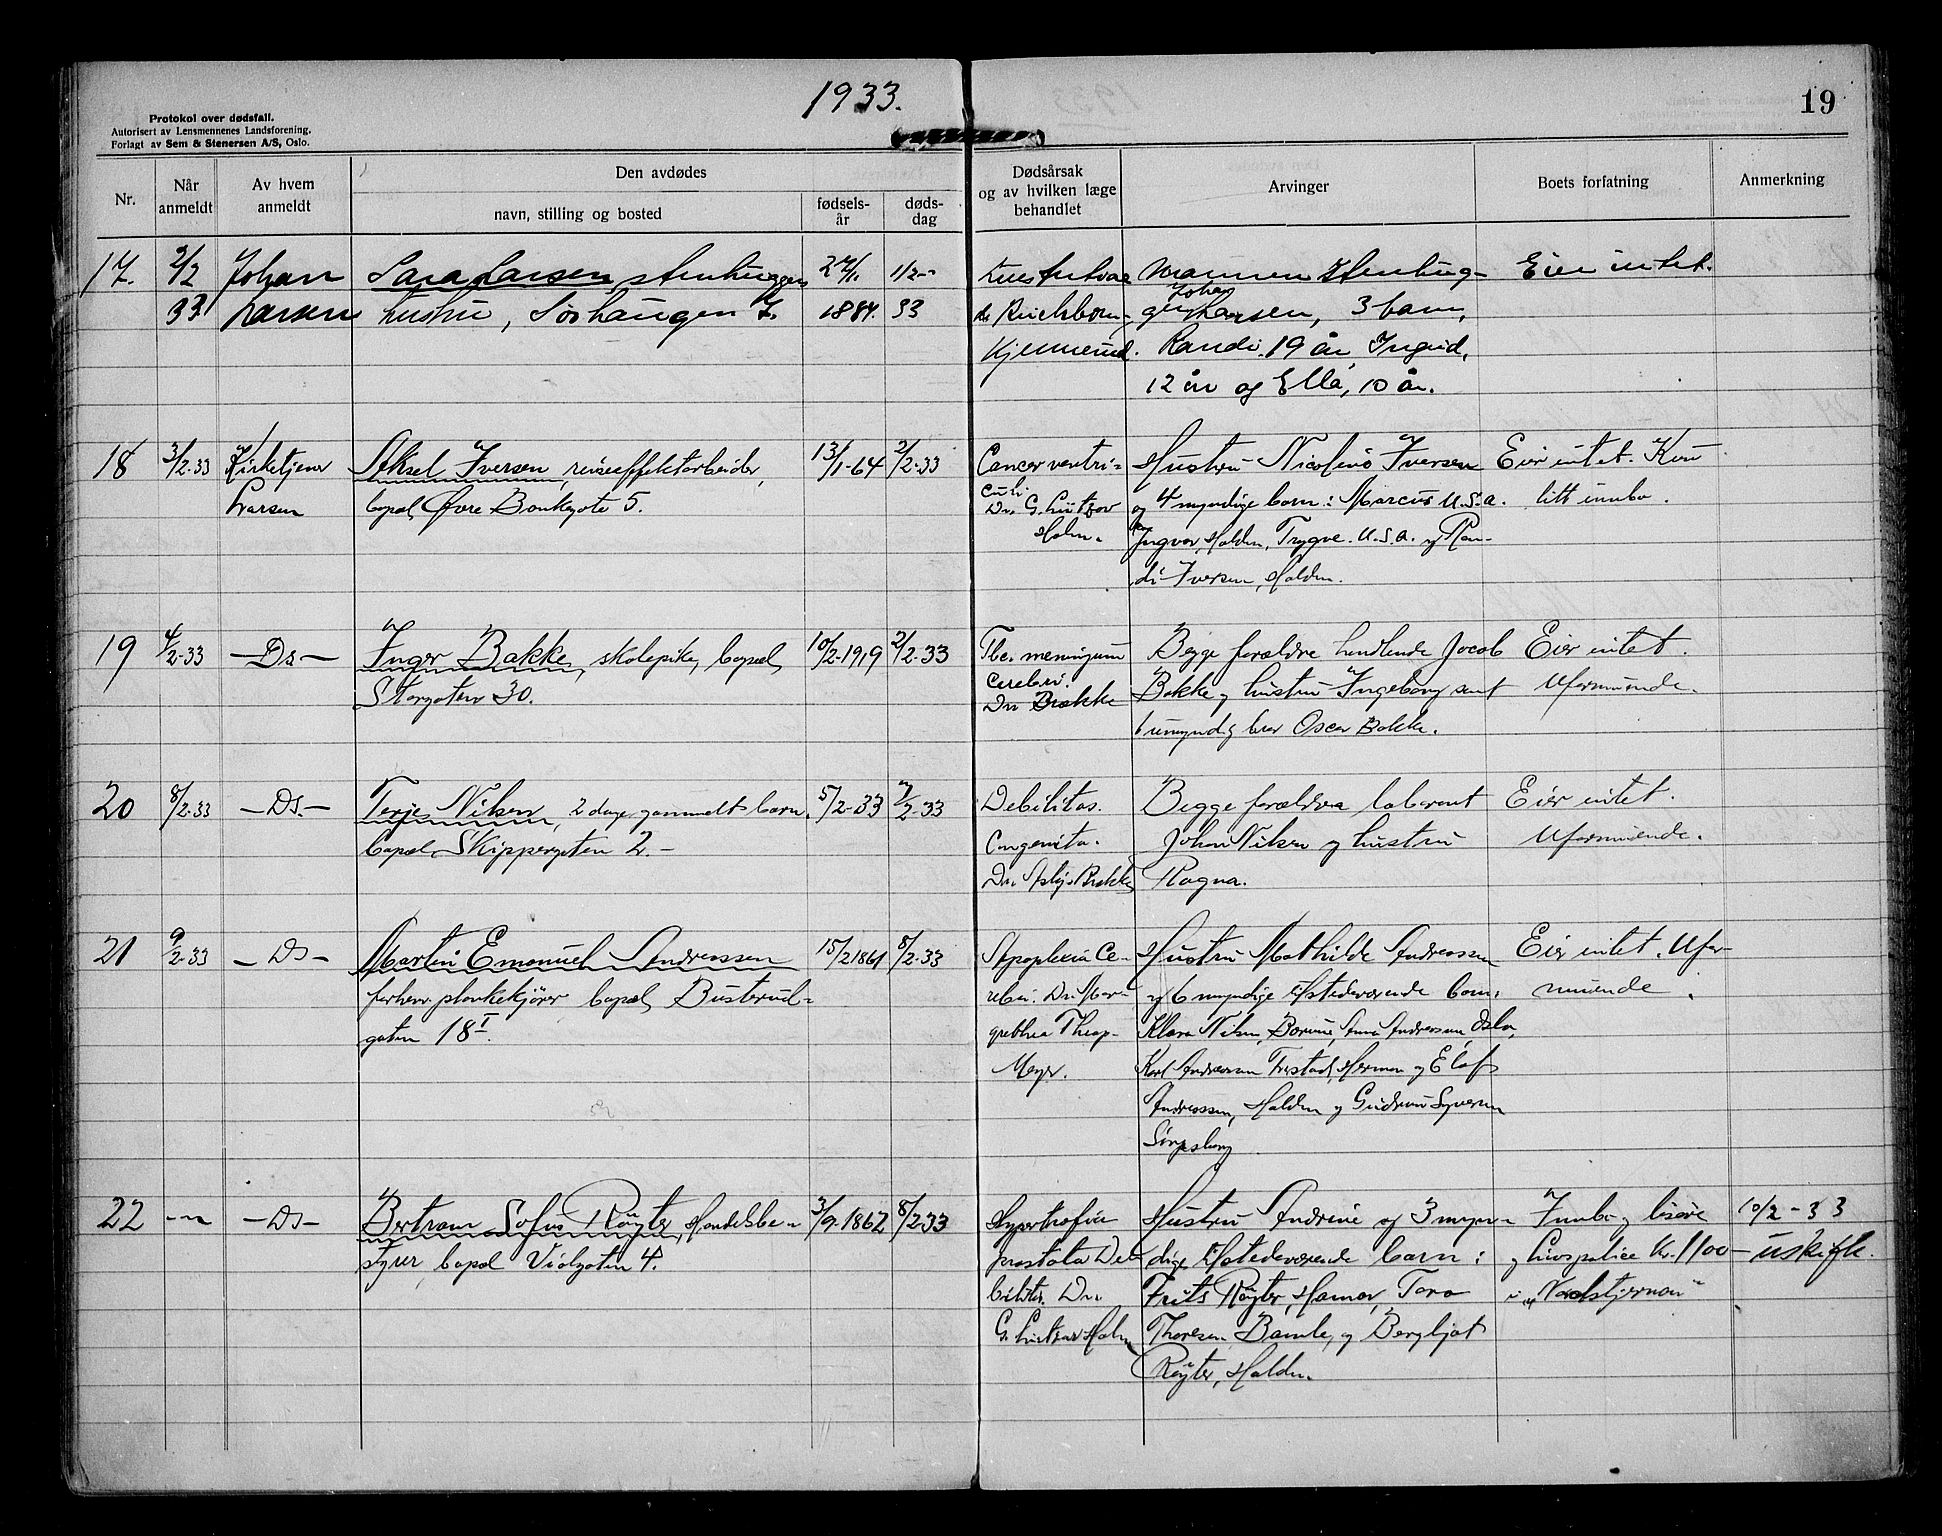 1933.
19
Protokol over dødsfall.
Autorisert av Lensmennenes Landsforening.
Forlagt av Sem & Stenersen A/S, Oslo.
Nr.
Når anmeldt
Av hvem anmeldt
Den avdødes
navn, stilling og bosted
fødsels-år
døds-dag
Dødsårsak og av hvilken læge behandlet
Arvinger
Boets forfatning
Anmerkning
17. 2/2 Johan Sara Larsen, stenhuggers 27/1 1/2- Mannen stenhug- Eier intet.
33 Larsen hustru, Sørhaugen 7. 1884. 33 ger Johan Larsen, 3 barn,
Kjennerud. Randi 19 år, Ingrid,
12 år og Ella, 10 år.
18 3/2-33 Kirketjener Aksel Iversen, reiseeffektarbeider, 13/1-64 2/2-33 Cancer ventri- Hustru Nicoline Iversen Eier intet. Kun
Larsen bopæl, Øvre Bankegate 5. culi og 4 myndige barn: Marcus U.S.A. litt innbo.
Dr. G. Lützow Ingvar, Halden, Trygve U.S.A. og Ran-
Holm. di Iversen, Halden.
19 4/2-33 -Ds- Inger Bakke, skolepike, bopæl, 10/2-1919 2/2-33 Tbc. meningum Begge forældre handlende Jacob Eier intet.
Storgaten 30. cerebri. Bakke og hustru Ingeborg samt Uformuende.
Dr. Brække umyndig bror Oscar Bakke.
20 8/2-33 -Ds- Terje Nilsen, 2 dage gammelt barn, 5/2-33 7/2-33 Debilitas. Begge forældre laborant Eier intet.
bopæl, Skippergaten 2.- Congenita. Johan Nilsen og hustru Uformuende.
Ragna.
21 9/2-33 -Ds- Martin Emanuel Andreassen 15/2 1861 8/2-33 Apoplexia Ce- Hustru Mathilde Andreassen Eier intet. Ufor-
forhenv. plankekjører bopæl, Busterud- rebri. Dr. Mar- og 6 myndige tilstedeværende barn: muende.
gaten 18 I. grethea Theop- Klara Nilsen, Anna Andreassen, Oslo,
Meyer. Karl Andreassen Herman og Elof
Andreassen, Halden og Gudrun Syversen
Sarpsborg
22 -"- -Ds- Bertram Sofus Röyter, Handelsbe- 3/9-1862 8/2-33 Hypertrofia Hustru Andrine og 3 myn- Innbo og løsøre 10/2-33
styrer, bopæl Violgaten 4. prostata De- dige tilstedeværende barn: og livspolice Kr. 1100- uskifte.
bilitas. Dr. Frits Röyter, Hamar, Tora i "Nordstjernan"
G. Lützow Holm Thoresen Bamle, og Bergljot
Röyter, Halden.